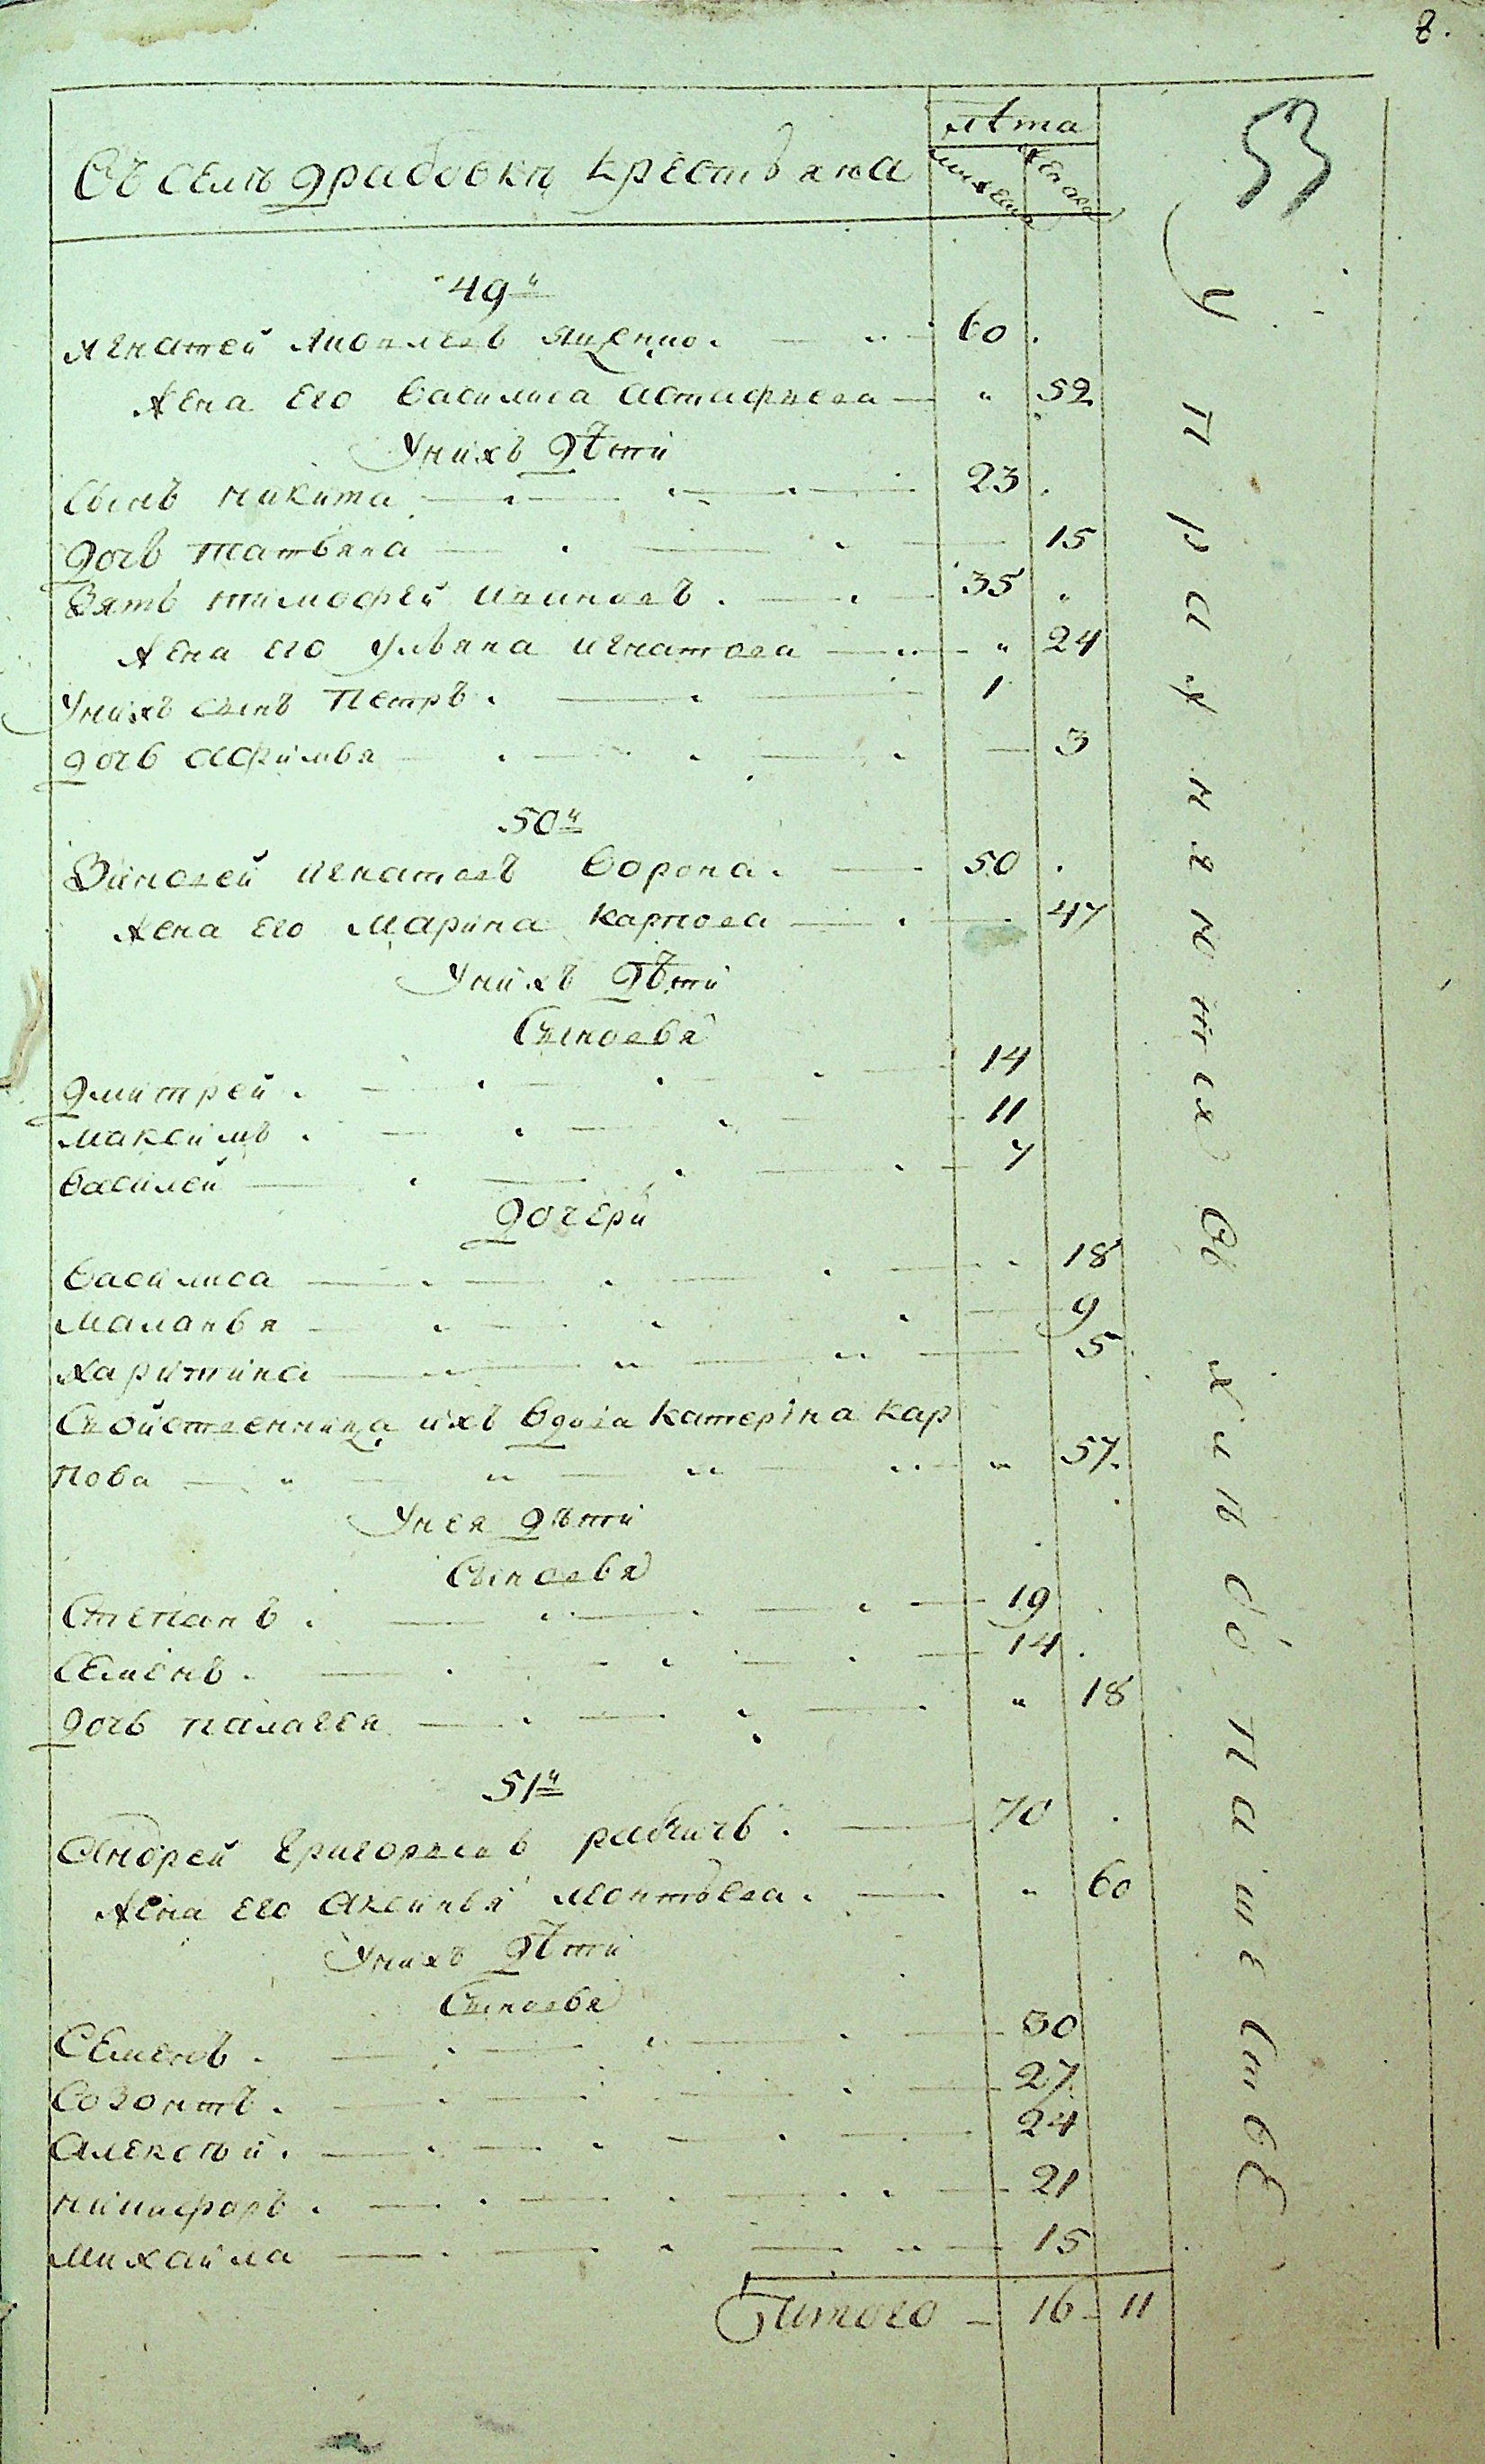 8.
53
лѣта
Въ селѣ драбовки крестьяна
мужска женска
49й
Игнатей Яковлевъ Яценко. 60
Жена Его Василиса Астафиева 52
Унихъ дѣти
Сынъ никита 23
дочь татьяна 15
Зять тимофей Ивановъ. 35
Жена его Ульяна Игнатова 24
Унихъ сынъ Петръ. 1
дочь Афимья 3
50й
Зиновей Игнатовъ Ворона. 50
Жена Его Марина Карпова 47
Унихъ дѣти
Сыновья
дмитрей. 14
Максимъ. 11
Василей 7
дочери
Василиса 18
Маланья 9
Харитина 5
Свойственница ихъ Вдова Катеріна Кар
пова 57.
Унея дѣти
Сыновья
Степанъ. 19
Семенъ. 14
дочь палагея 18
51й
Андрей Григорьевъ 70
Жена Его Аксинья Леонтьева. 60
Унихъ дѣти
Сыновья
Семенъ. 30
Созонтъ. 27
Алексѣй. 24
никифоръ. 21
Михайла 15
Итого 16 11